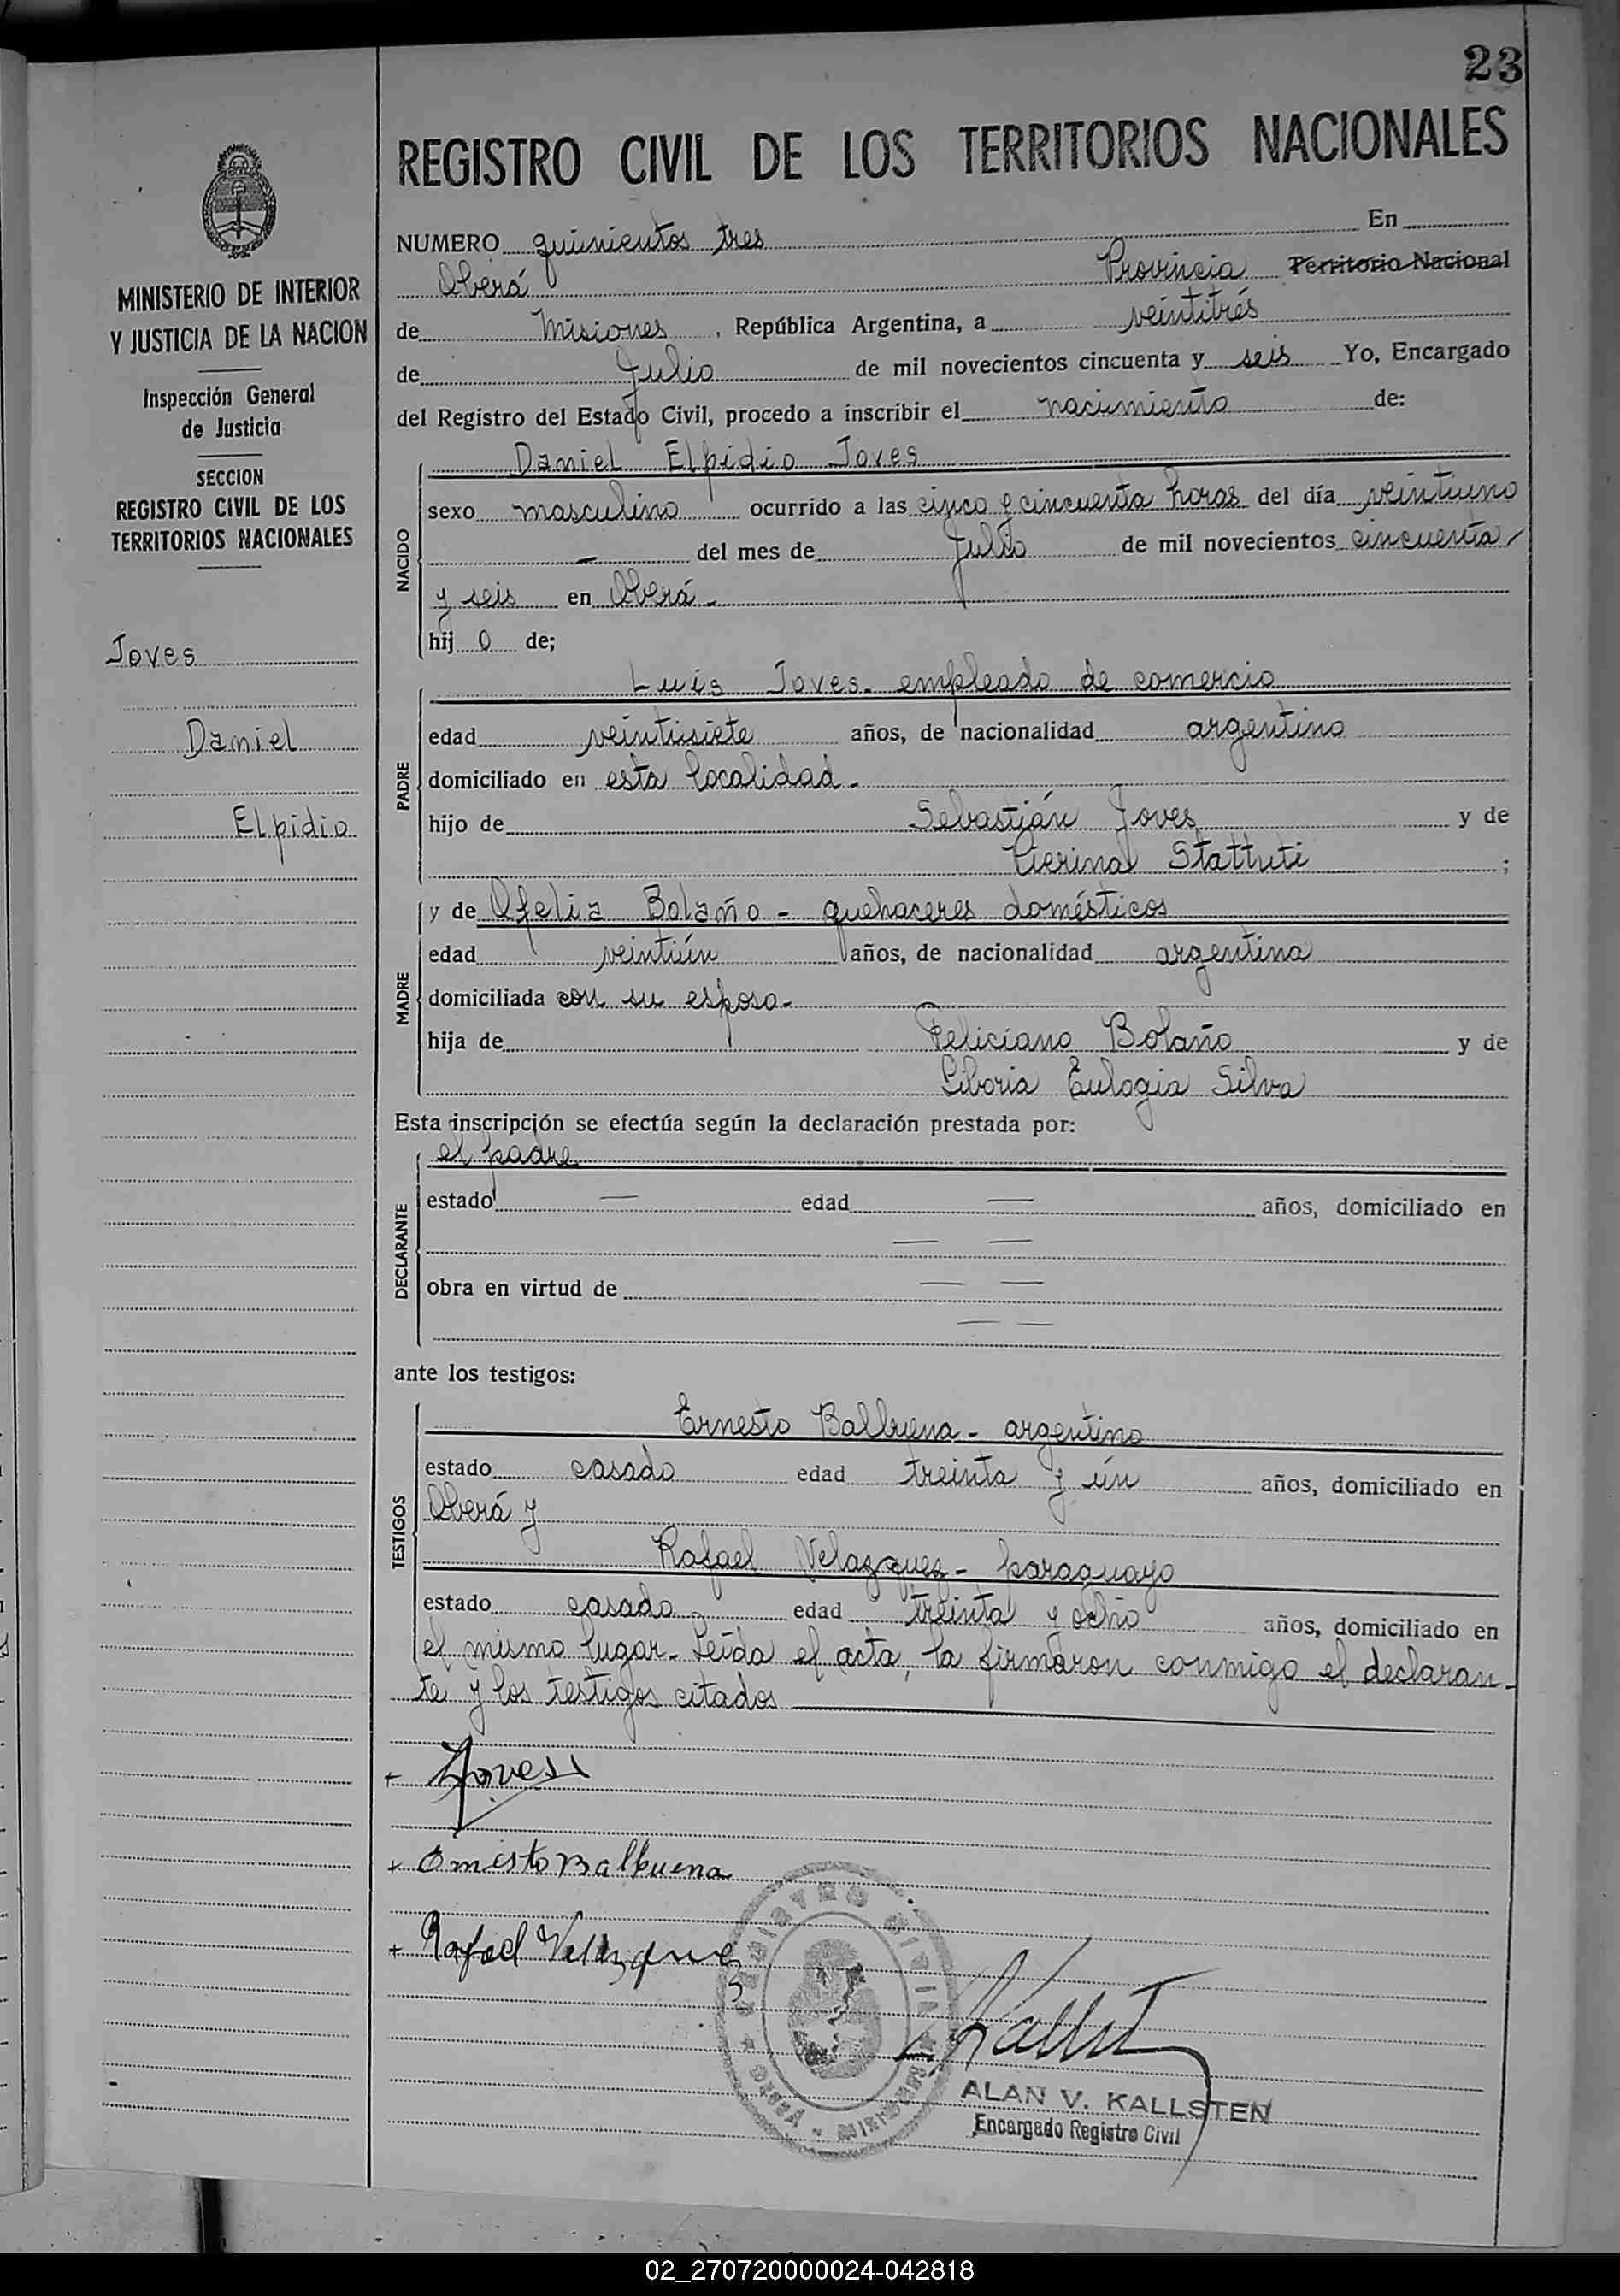 23
REGISTRO CIVIL DE LOS TERRITORIOS NACIONALES
MINISTERIO DE INTERIOR
Y JUSTICIA DE LA NACION
Inspección General
de Justicia
SECCION
REGISTRO CIVIL DE LOS
TERRITORIOS NACIONALES
Joves
Daniel
Elpidio
NUMERO quinientos tres En
Oberá Provincia Territorio Nacional
de Misiones, República Argentina, a veintitrés
de Julio de mil novecientos cincuenta y seis Yo, Encargado
del Registro del Estado Civil, procedo a inscribir el nacimiento de:
NACIDO
Daniel Elpidio Joves
sexo masculino ocurrido a las cinco y cincuenta horas del día veintiuno
— del mes de Julio de mil novecientos cincuenta
y seis en Oberá -
hijo de;
PADRE
Luis Joves - empleado de comercio
edad veintisiete años, de nacionalidad argentino
domiciliado en esta localidad -
hijo de Sebastián Joves y de
Pierina Stattuti ;
MADRE
y de Ofelia Bolaño - quehaceres domésticos
edad veintiún años, de nacionalidad argentina
domiciliada con su esposo -
hija de Feliciano Bolaño y de
Liboria Eulogia Silva
Esta inscripción se efectúa según la declaración prestada por:
DECLARANTE
el padre
estado — edad — años, domiciliado en
— —
obra en virtud de — —
— —
ante los testigos:
TESTIGOS
Ernesto Balbuena - argentino
estado casado edad treinta y ún años, domiciliado en
Oberá y
Rafael Velazquez - paraguayo
estado casado edad treinta y ocho años, domiciliado en
el mismo lugar - Leída el acta, la firmaron conmigo el declaran-
te y los testigos citados
+ Joves
+ Ernesto Balbuena
+ Rafael Velazquez
REGISTRO CIVIL
OBERA - MISIONES
ALAN V. KALLSTEN
Encargado Registro Civil
02_270720000024-042818